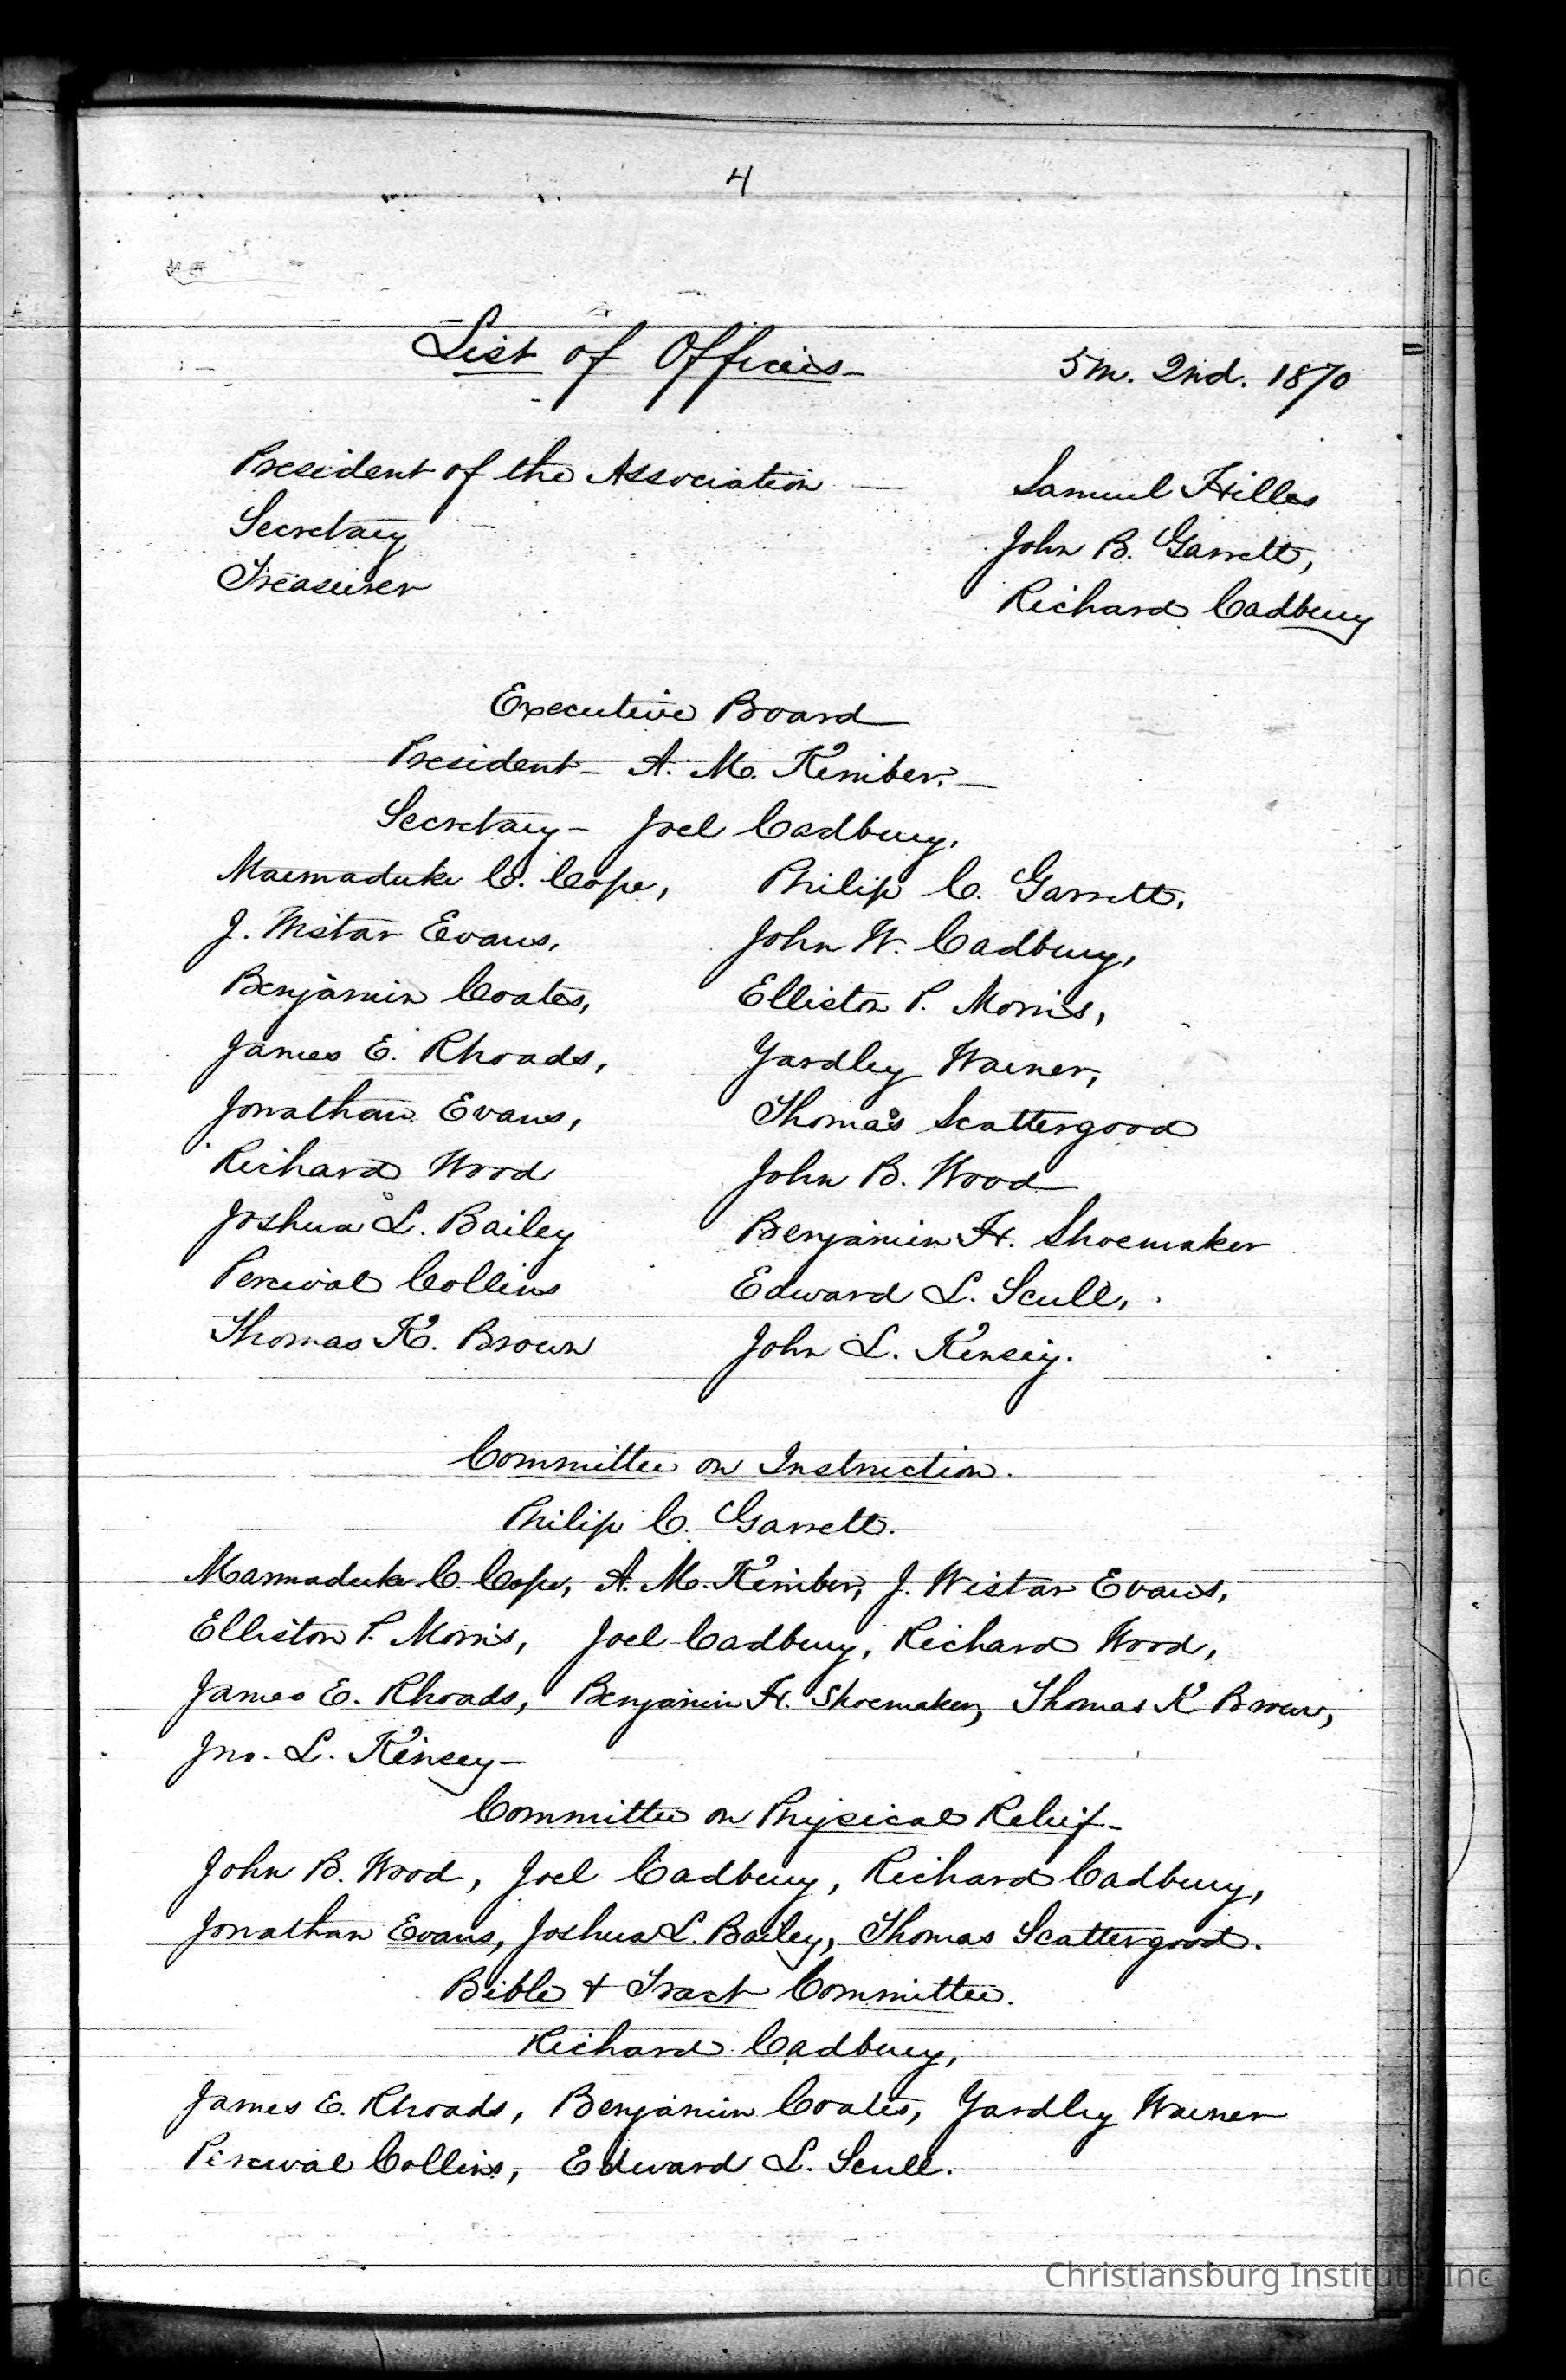 4
List of Officers- 5m. 2nd. 1870
President of the Association — Samuel Hilles
Secretary John B. Garrett,
Treasurer Richard Cadbury
Executive Board
President - A. M. Kimber. —
Secretary - Joel Cadbury.
Marmaduke C. Cope, Philip C. Garrett.
J. Wistar Evans, John W. Cadbury,
Benjamin Coates, Elliston P. Morris,
James E. Rhoads, Yardley Warner,
Jonathan Evans, Thomas Scattergood
Richard Wood John B. Wood
Joshua L. Bailey Benjamin H. Shoemaker
Percival Collins Edward L. Scull,
Thomas K. Brown John L. Kinsey.
Committee on Instruction.
Philip C. Garrett.
Marmaduke C. Cope, A. M. Kimber, J. Wistar Evans,
Elliston P. Morris, Joel Cadbury, Richard Wood,
James E. Rhoads, Benjamin H. Shoemaker, Thomas K Brown,
Jno. L. Kinsey -
Committee on Physical Relief -
John B. Wood, Joel Cadbury, Richard Cadbury,
Jonathan Evans, Joshua L. Bailey, Thomas Scattergood.
Bible & Tract Committee.
Richard Cadbury,
James E. Rhoads, Benjamin Coates, Yardley Warner
Percival Collins, Edward L. Scull.
Christiansburg Institute, Inc